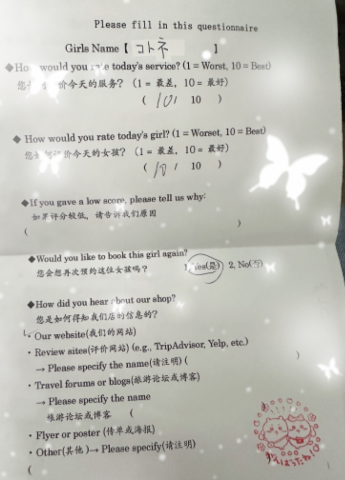 Please fill in this questionnaire
Girls Name【 コトネ 】
◆How would you rate today's service? (1 = Worst, 10 = Best)
您 价今天的服务？ (1 = 最差，10 = 最好)
( 10/ 10 )
◆ How would you rate today's girl? (1 = Worset, 10 = Best)
您 价今天的女孩？ (1 = 最差，10 = 最好)
( 10/ 10 )
◆If you gave a low score, please tell us why:
如果评分较低，请告诉我们原因
( )
◆Would you like to book this girl again?
您会想再次预约这位女孩吗？ 1, Yes(是) 2, No(否)
◆How did you hear about our shop?
您是如何得知我们店的信息的？
・Our website(我们的网站)
・Review sites(评价网站) (e.g., TripAdvisor, Yelp, etc.)
→ Please specify the name(请注明) ( )
・Travel forums or blogs(旅游论坛或博客)
→ Please specify the name
旅游论坛或博客 (
・Flyer or poster (传单或海报)
・Other(其他)→ Please specify(请注明)
(